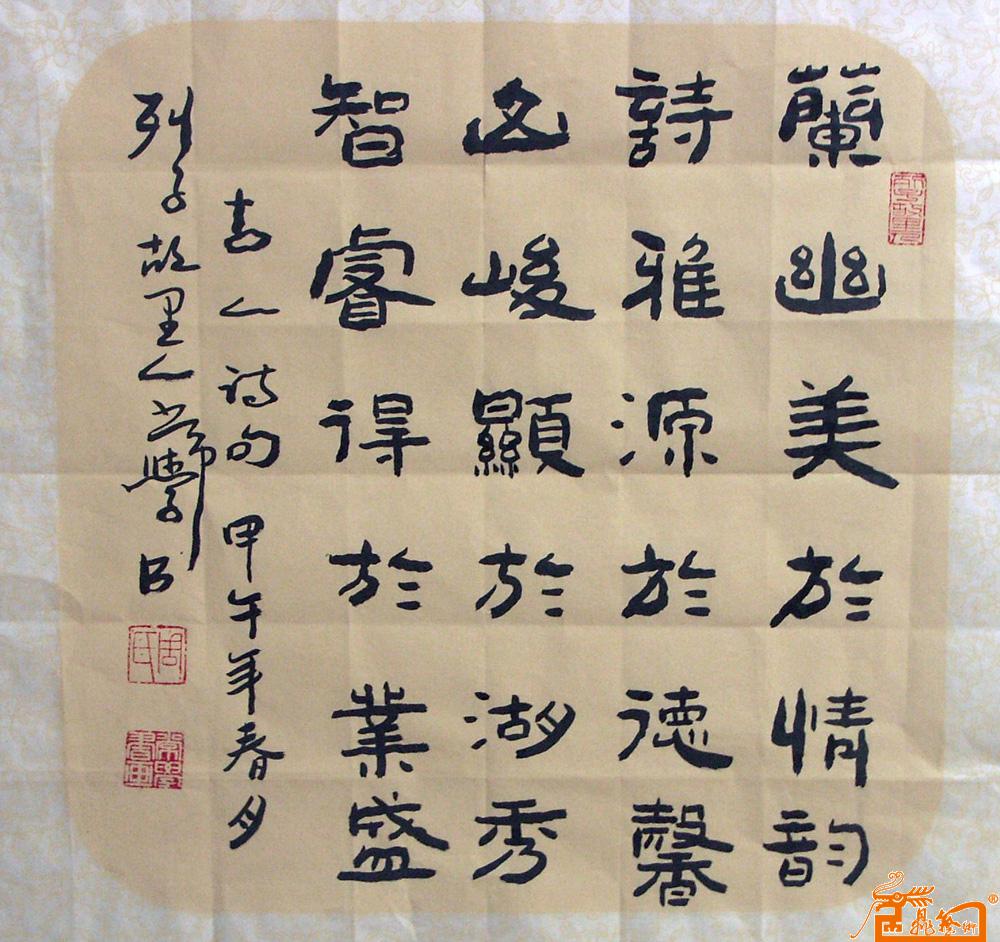 蘭幽美於情韵
詩雅源於德馨
山峻顯於湖秀
智睿得於業盛
古人詩句 甲午年春月
列子故里人學書
周氏